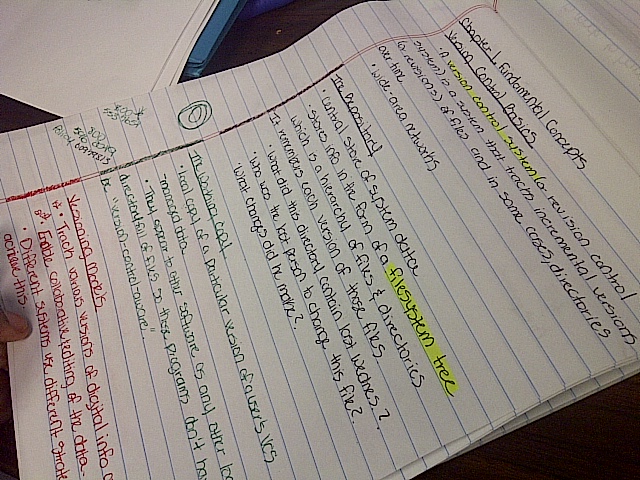 Chapter 1 Fundamental Concepts
Version Control Basics
· A version control system (or revision control
system) is a system that tracks incremental versions
(or revisions) of files and in some cases, directories
over time
· Wide-area networks
The Repository
· Central store of system data
· Stores info in the form of a filesystem tree
which is a hierarchy of files & directories
It remembers each version of those files
· what did this directory contain last Wednes.?
· who was the last person to change this file?
· What changes did he make?
The Working Copy
· local copy of a particular version of a user's VCS
managed data
· They appear to other software as any other loc
directory full of files so those programs don't ha
be "version-control aware"
Versioning Models
· Tracks various versions of digital info
· Enable collaborative editing of the data.
· Different systems use different strate
achieve this